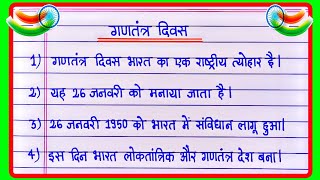 गणतंत्र दिवस
1) गणतंत्र दिवस भारत का एक राष्ट्रीय त्योहार है।
2) यह 26 जनवरी को मनाया जाता है।
3) 26 जनवरी 1950 को भारत में संविधान लागू हुआ।
4) इस दिन भारत लोकतांत्रिक और गणतंत्र देश बना।